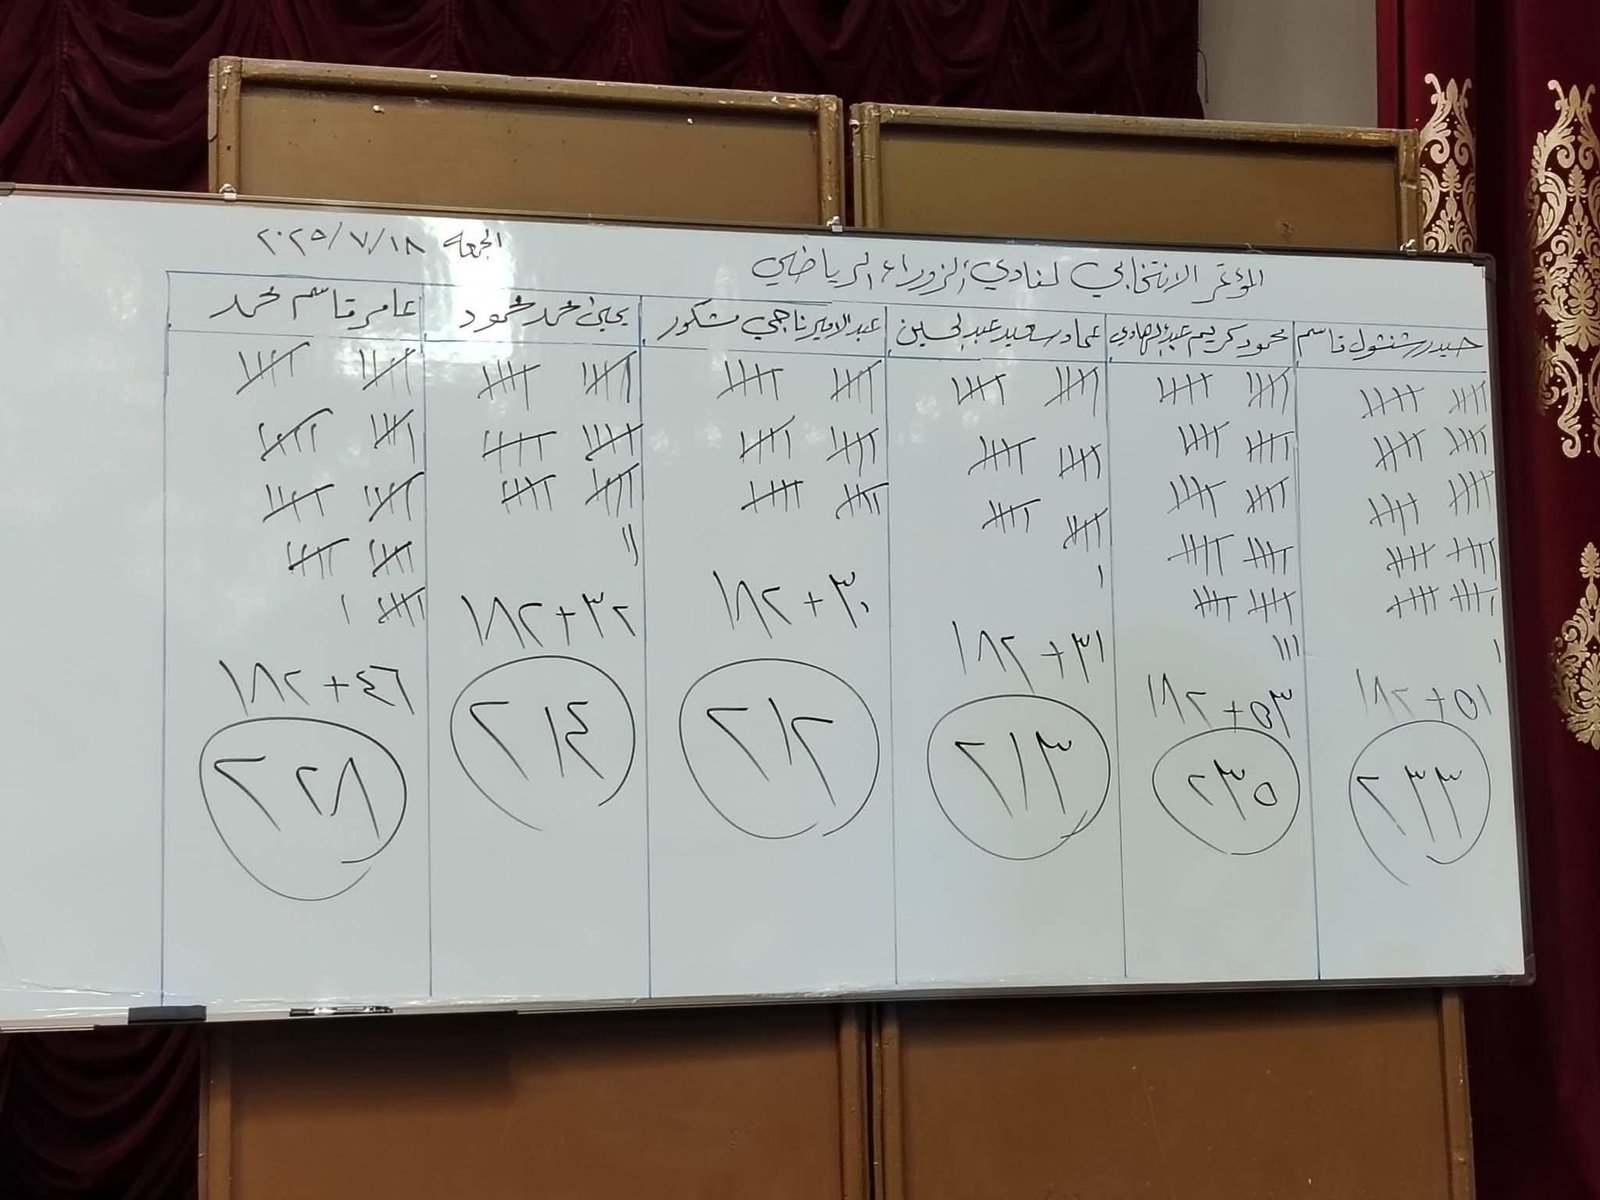 المؤتمر الانتخابي لنادي الزوراء الرياضي
الجمعه ٢٠٢٥/٧/١٨
حيدر شنشول قاسم
١٨٢+٥١
٢٣٣
محمود كريم عبدالهادي
١٨٢+٥٣
٢٣٥
عماد سعيد عبدالحسين
١٨٢+٣١
٢١٣
عبدالامير ناجي مشكور
١٨٢+٣٠
٢١٢
يحيى محمد محمود
١٨٢+٣٢
٢١٤
عامر قاسم محمد
١٨٢+٤٦
٢٢٨